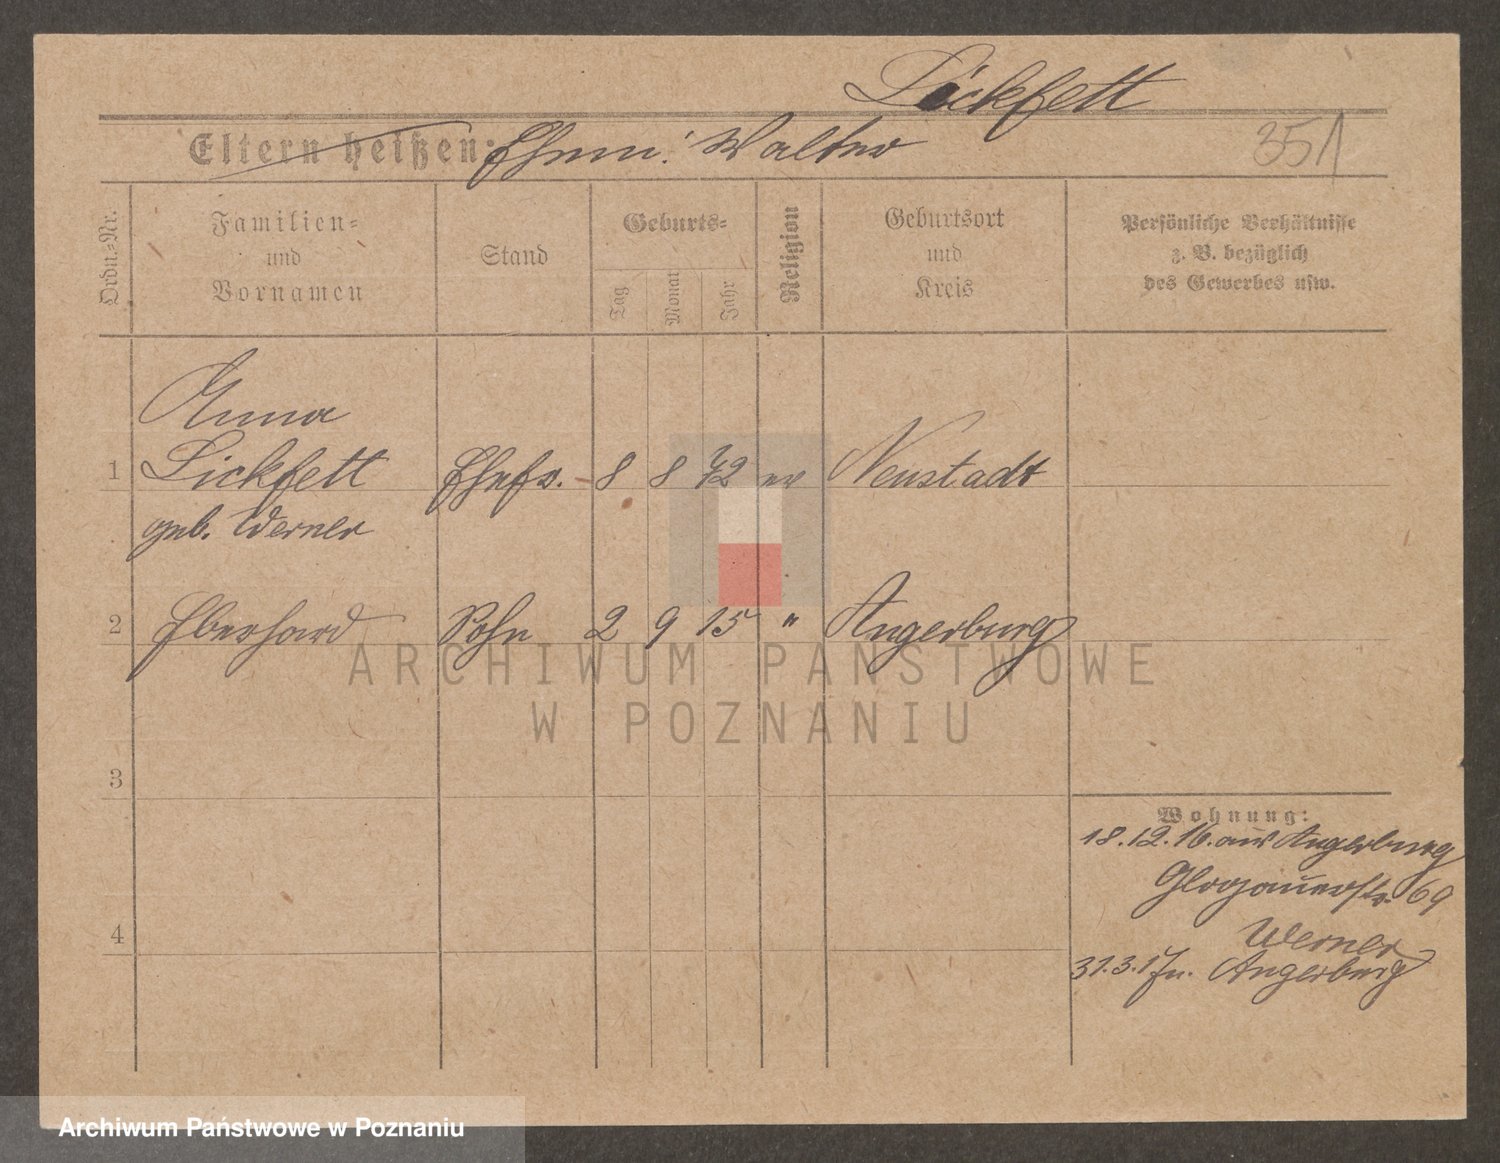 Lickfett
Eltern heißen: Ehem: Walter
351
Ordn.-Nr.
Familien-
und
Vornamen
Stand
Geburts-
Tag
Monat
Jahr
Religion
Geburtsort
und
Kreis
Persönliche Verhältnisse
z. B. bezüglich
des Gewerbes usw.
Anna
1 Lickfett Ehefr. 8 8 72 ev Neustadt
geb. Werner
2 Eberhard Sohn 2 9 15 " Angerburg
ARCHIWUM PAŃSTWOWE
W POZNANIU
3
Wohnung:
18.12.16. aus Angerburg
Glogauerstr. 69
4
Werner
31.3.17 n. Angerburg
Archiwum Państwowe w Poznaniu